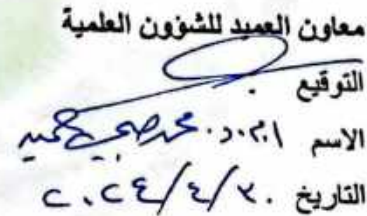 معاون العميد للشؤون العلمية
التوقيع
الاسم ا.م.د. محمد صبحي حميد
التاريخ ٢٠٢٤/٤/٣٠